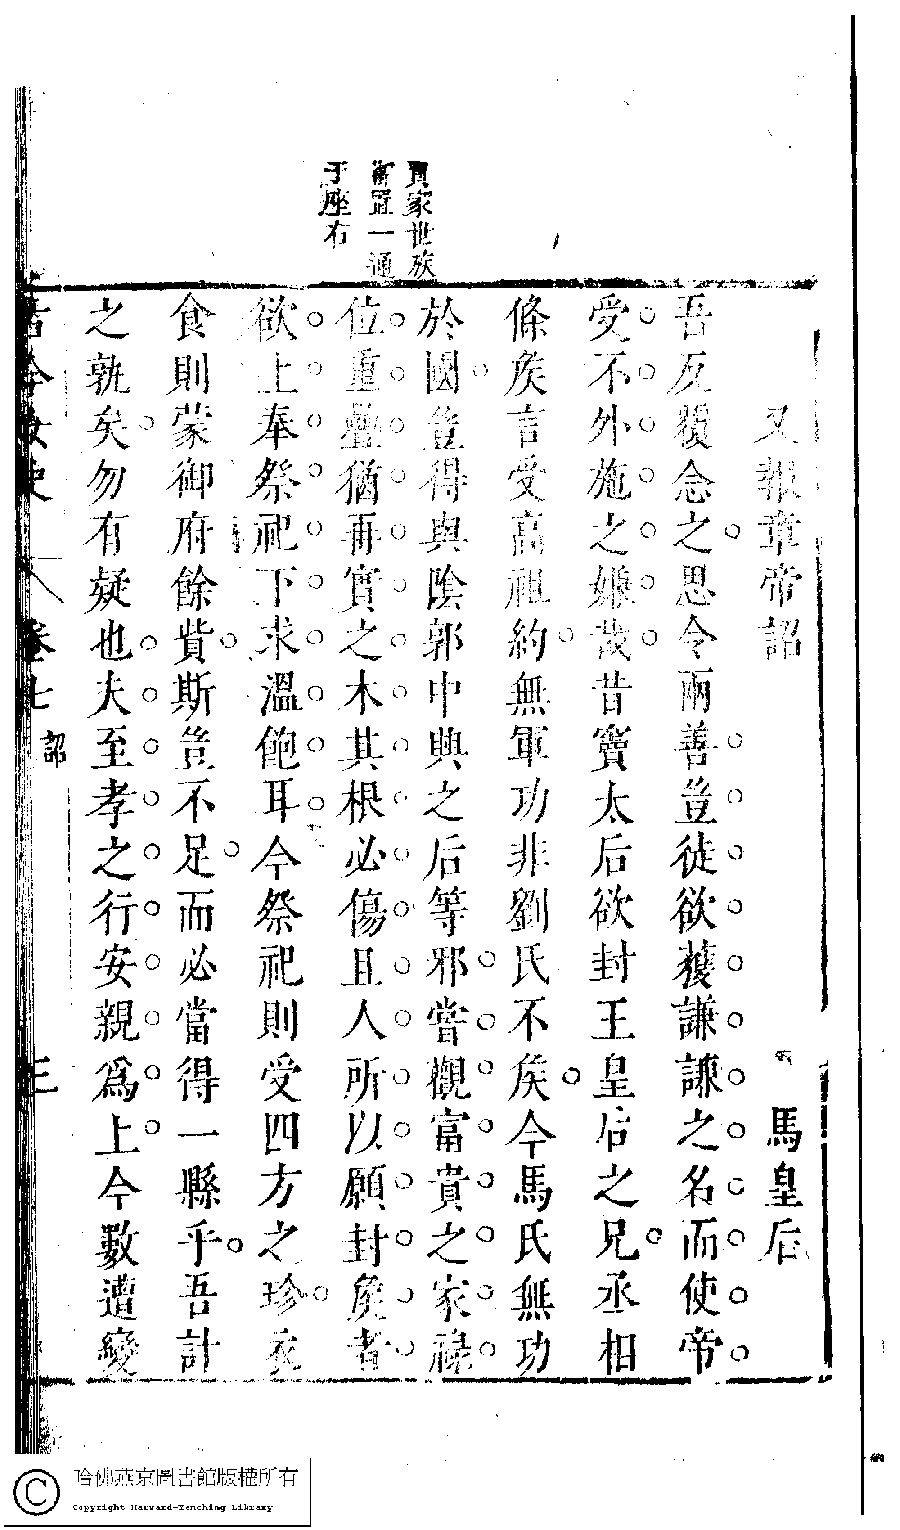 貴家世族
當置一通
于座右
又報章帝詔 馬皇后
吾反覆念之思令兩善豈徒欲獲謙謙之名而使帝
受不外施之嫌哉昔竇太后欲封王皇后之兄丞相
條矦言受高祖約無軍功非劉氏不矦今馬氏無功
於國豈得與陰郭中興之后等邪嘗觀富貴之家祿
位重疊猶再實之木其根必傷且人所以願封矦者
欲上奉祭祀下求溫飽耳今祭祀則受四方之珍衣
食則蒙御府餘貲斯豈不足而必當得一縣乎吾計
之孰矣勿有疑也夫至孝之行安親爲上今數遭變
古今女史 卷七 詔 三
哈佛燕京圖書館版權所有
Copyright Harvard-Yenching Library